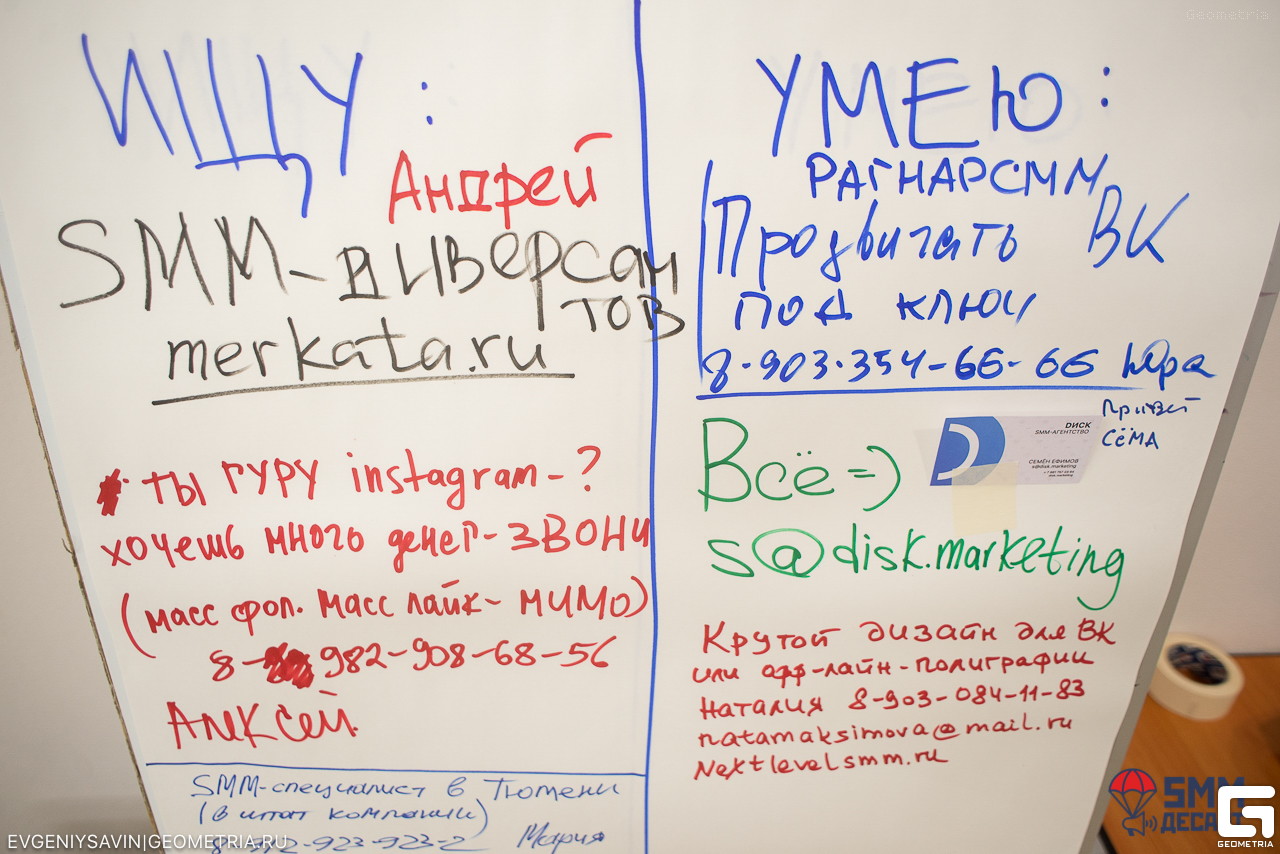 Geometria
ИЩУ:
Андрей
SMM-дыверсан
тов
merkata.ru
ты гуру instagram-?
хочешь много денег-ЗВОНИ
(масс фол. масс лайк-МИМО)
8-982-908-68-56
Алексей
SMM-специалист в Тюмени
(в штат компании)
923-923-2 Мария
УМЕЮ:
РАГНАРСММ
Продвигать ВК
под ключ
8-903-354-66-66 Юра
Привет
СЁМА
Всё =)
ДИСК
SMM-АГЕНТСТВО
СЕМЁН ЕФИМОВ
s@disk.marketing
s@disk.marketing
Крутой дизайн для ВК
или офф-лайн-полиграфии
Наталия 8-903-084-11-83
natamaksimova@mail.ru
Nextlevelsmm.ru
SMM
ДЕСАНТ
EVGENIYSAVIN|GEOMETRIA.RU
GEOMETRIA